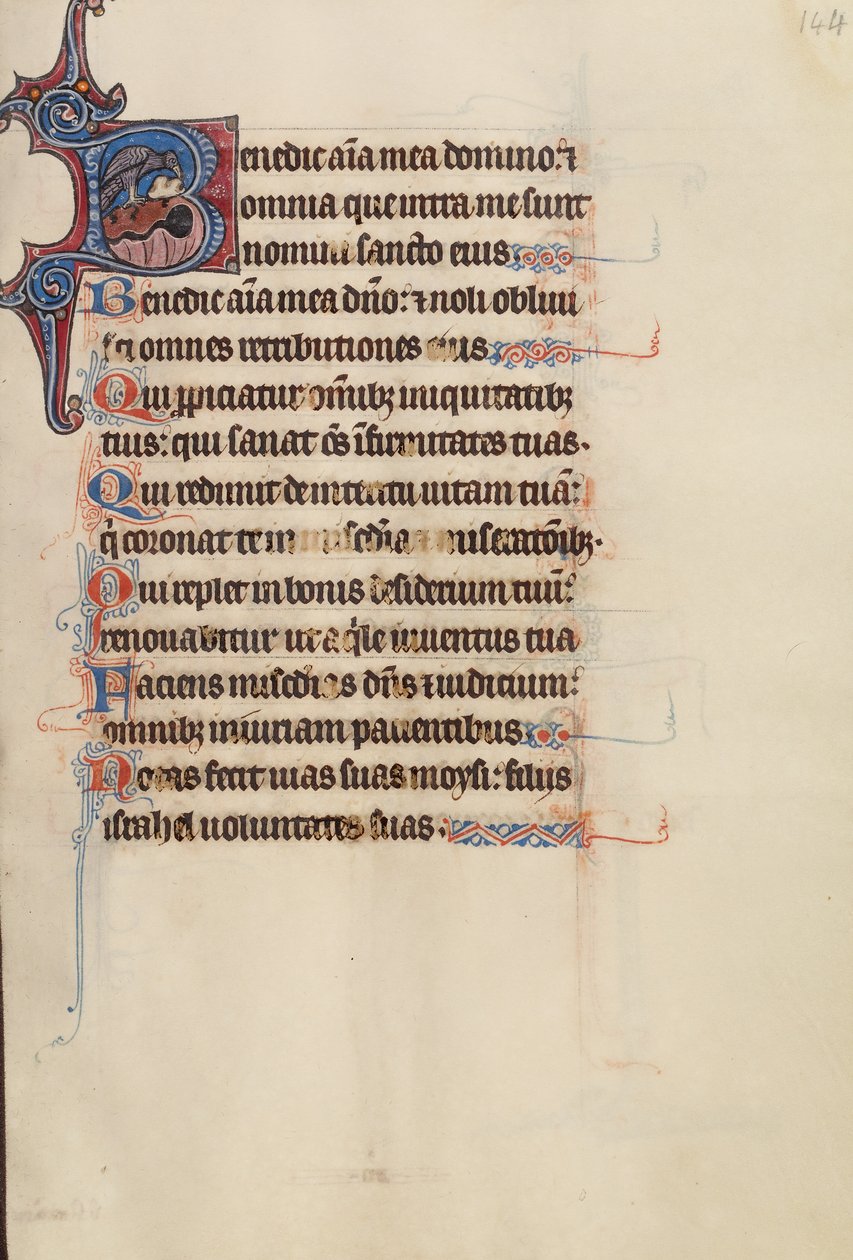 144
Benedic aĩa mea domino: ⁊
omnia que intra me sunt
nomini sancto eius
Benedic aĩa mea dño: ⁊ noli obliui
sci omnes retributiones eius
Qui ꝓpiciatur om̃ibꝫ iniquitatibꝫ
tuis: qui sanat õs ĩfirmitates tuas.
Qui redimit de interitu uitam tuã:
q̃ coronat te in mis̃cdia ⁊ miseratõibꝫ.
Qui replet in bonis desiderium tuũ:
renouabitur ut aq̃le iuuentus tua
Faciens mis̃cdias dñs ⁊ iudicium:
omnibꝫ iniuriam patientibus
Notas fecit uias suas moysi: filiis
israhel uoluntates suas.